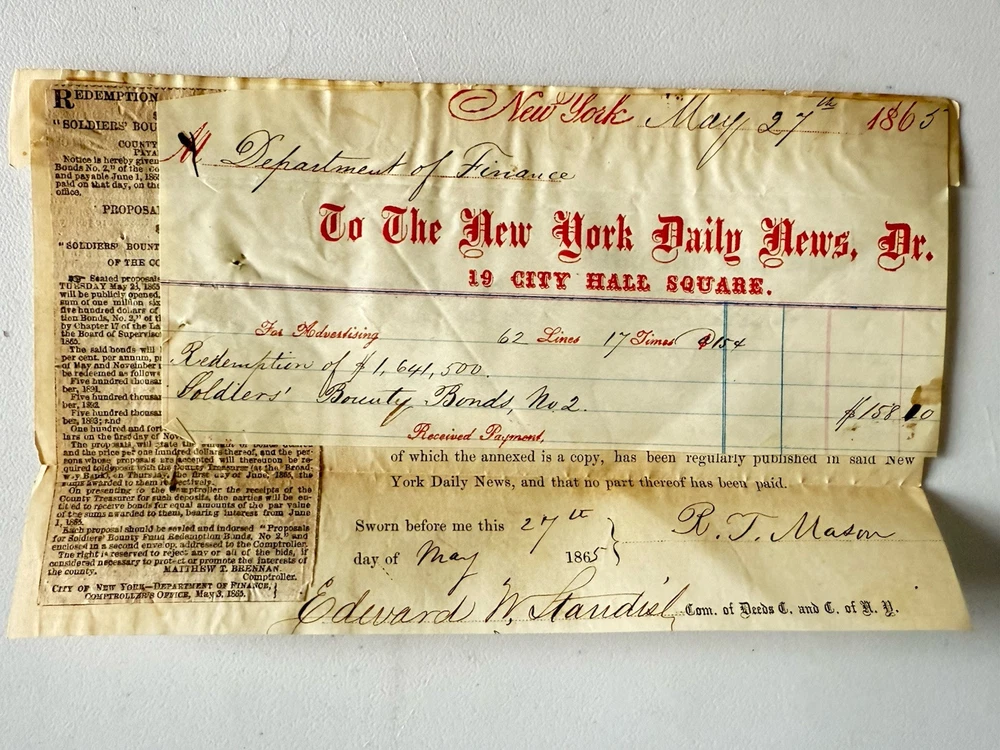 New York May 27th 1865
M Department of Finance
To The New York Daily News, Dr.
19 CITY HALL SQUARE.
For Advertising 62 Lines 17 Times $154
Redemption of $1,641,500.
Soldiers' Bounty Bonds, No 2.
Received Payment,
of which the annexed is a copy, has been regularly published in said New
York Daily News, and that no part thereof has been paid.
Sworn before me this 27th
day of May 1865
R. T. Mason
Edward W. Standish Com. of Deeds C. and C. of N. Y.
REDEMPTION
"SOLDIERS' BOU
COUNTY
PAYA
Notice is hereby given
Bonds No. 2," of the co
and payable June 1, 186
paid on that day, on the
office.
PROPOSA
"SOLDIERS' BOUNT
OF THE CO
Sealed proposals
TUESDAY May 23, 1865
will be publicly opened,
sum of one million six
five hundred dollars of
tion Bonds, No. 2," of t
by Chapter 17 of the La
the Board of Superviso
1865.
The said bonds will
per cent. per annum, p
of May and November
be redeemed as follows
Five hundred thousan
ber, 1891.
Five hundred thousan
ber, 1892.
Five hundred thousa
ber, 1893; and
One hundred and fort
lars on the first day of Nov
The proposals will state the amount of bonds desired
and the price per one hundred dollars thereof, and the per-
sons whose proposals are accepted will thereupon be re-
quired to deposit with the County Treasurer (at the Broad-
way Bank), on Thursday, the first day of June, 1865, the
sums awarded to them respectively.
On presenting to the Comptroller the receipts of the
County Treasurer for such deposits, the parties will be en-
titled to receive bonds for equal amounts of the par value
of the sums awarded to them, bearing interest from June
1, 1865.
Each proposal should be sealed and indorsed "Proposals
for Soldiers' Bounty Fund Redemption Bonds, No 2," and
enclosed in a second envelop, addressed to the Comptroller.
The right is reserved to reject any or all of the bids, if
considered necessary to protect or promote the interests of
the county.
MATTHEW T. BRENNAN.
Comptroller.
CITY OF NEW YORK—DEPARTMENT OF FINANCE,
COMPTROLLER'S OFFICE, May 3, 1865.